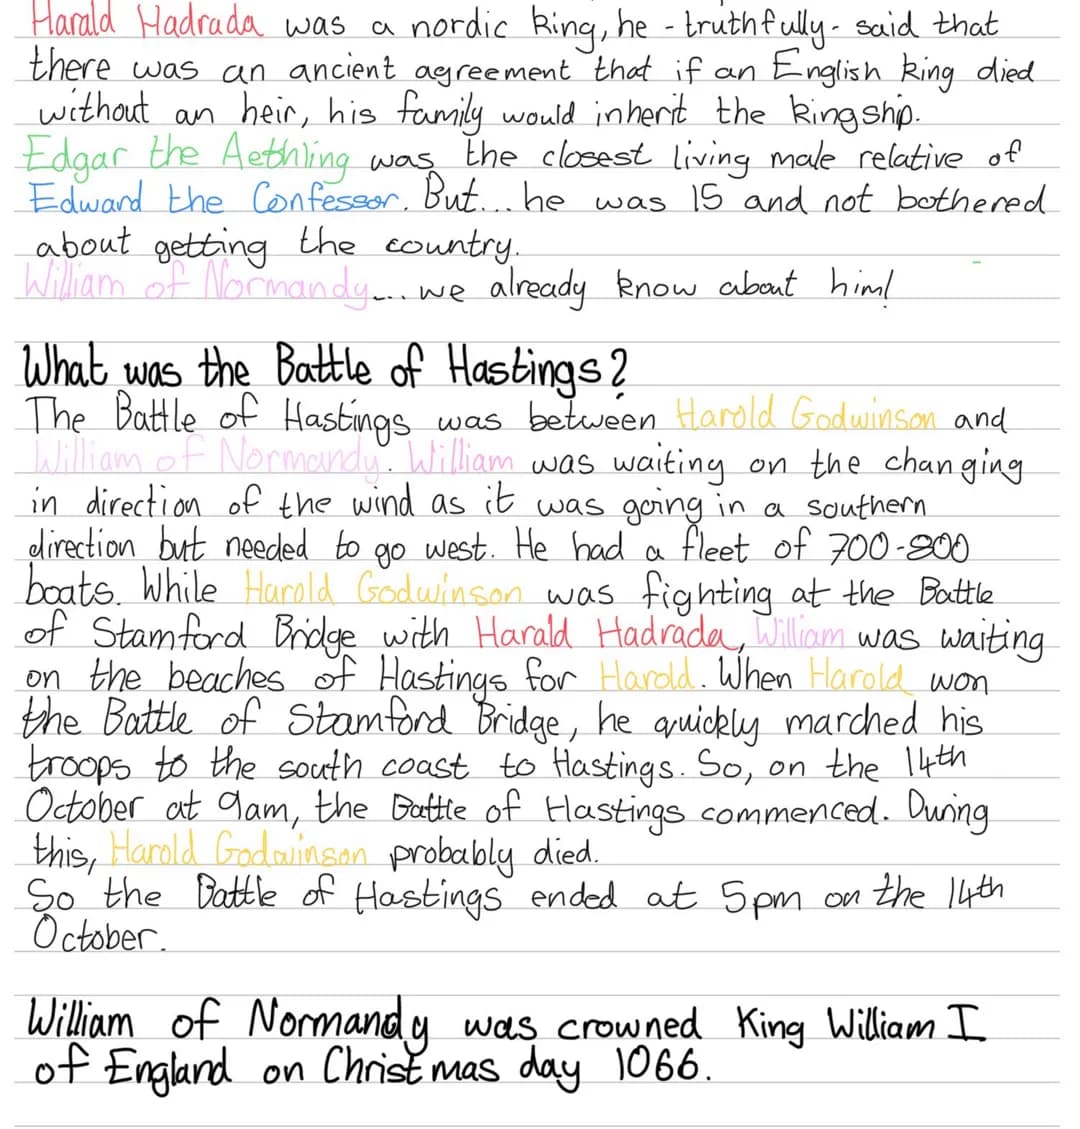 Harald Hadrada was a nordic king, he - truthfully - said that
there was an ancient agreement that if an English king died
without an heir, his family would inherit the kingship.
Edgar the Aethling was the closest living male relative of
Edward the Confessor. But... he was 15 and not bothered
about getting the country.
William of Normandy.... we already know about him!
What was the Battle of Hastings?
The Battle of Hastings was between Harold Godwinson and
William of Normandy. William was waiting on the changing
in direction of the wind as it was going in a southern
direction but needed to go west. He had a fleet of 700-800
boats. While Harold Godwinson was fighting at the Battle
of Stamford Bridge with Harald Hadrada, William was waiting
on the beaches of Hastings for Harold. When Harold won
the Battle of Stamford Bridge, he quickly marched his
troops to the south coast to Hastings. So, on the 14th
October at 9am, the Battle of Hastings commenced. During
this, Harold Godwinson probably died.
So the Battle of Hastings ended at 5pm on the 14th
October.
William of Normandy was crowned King William I
of England on Christmas day 1066.